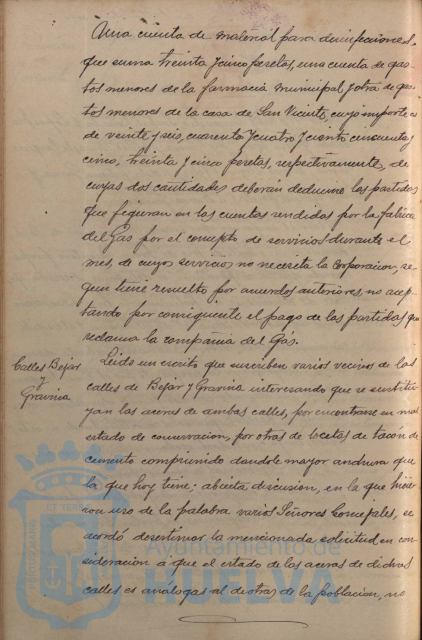 Una cuenta de material para desinfecciones,
que suma treinta y cinco pesetas, una cuenta de gas-
tos menores de la farmacia municipal y otra de gas-
tos menores de la casa de San Vicente, cuyo importe es
de veinte y seis, cuarenta y cuatro y ciento cincuenta y
cinco, treinta y cinco pesetas, respectivamente, de
cuyas dos cantidades deberán deducirse las partidas
que figuran en las cuentas rendidas por la fabrica
del Gas por el concepto de servicios durante el
mes, de cuyos servicios no necesita la Corporacion, se-
gun tiene resuelto por acuerdos anteriores, no acep-
tando por consiguiente el pago de las partidas que
reclama la compañia del Gas.
Calles Bejar
y
Gravina
Leido un escrito que suscriben varios vecinos de las
calles de Bejar y Gravina interesando que se sustitu-
yan las aceras de ambas calles, por encontrarse en mal
estado de conservacion, por otras de locetas de tacón de
cemento comprimido dandole mayor anchura que
la que hoy tiene; abierta discusion, en la que hicie-
ron uso de la palabra varios Señores Concejales, se
acordó desestimar la mencionada solicitud en con-
sideracion á que el estado de las aceras de dichas
calles es análogas al de otras de la poblacion, no
Ayuntamiento de
HUELVA